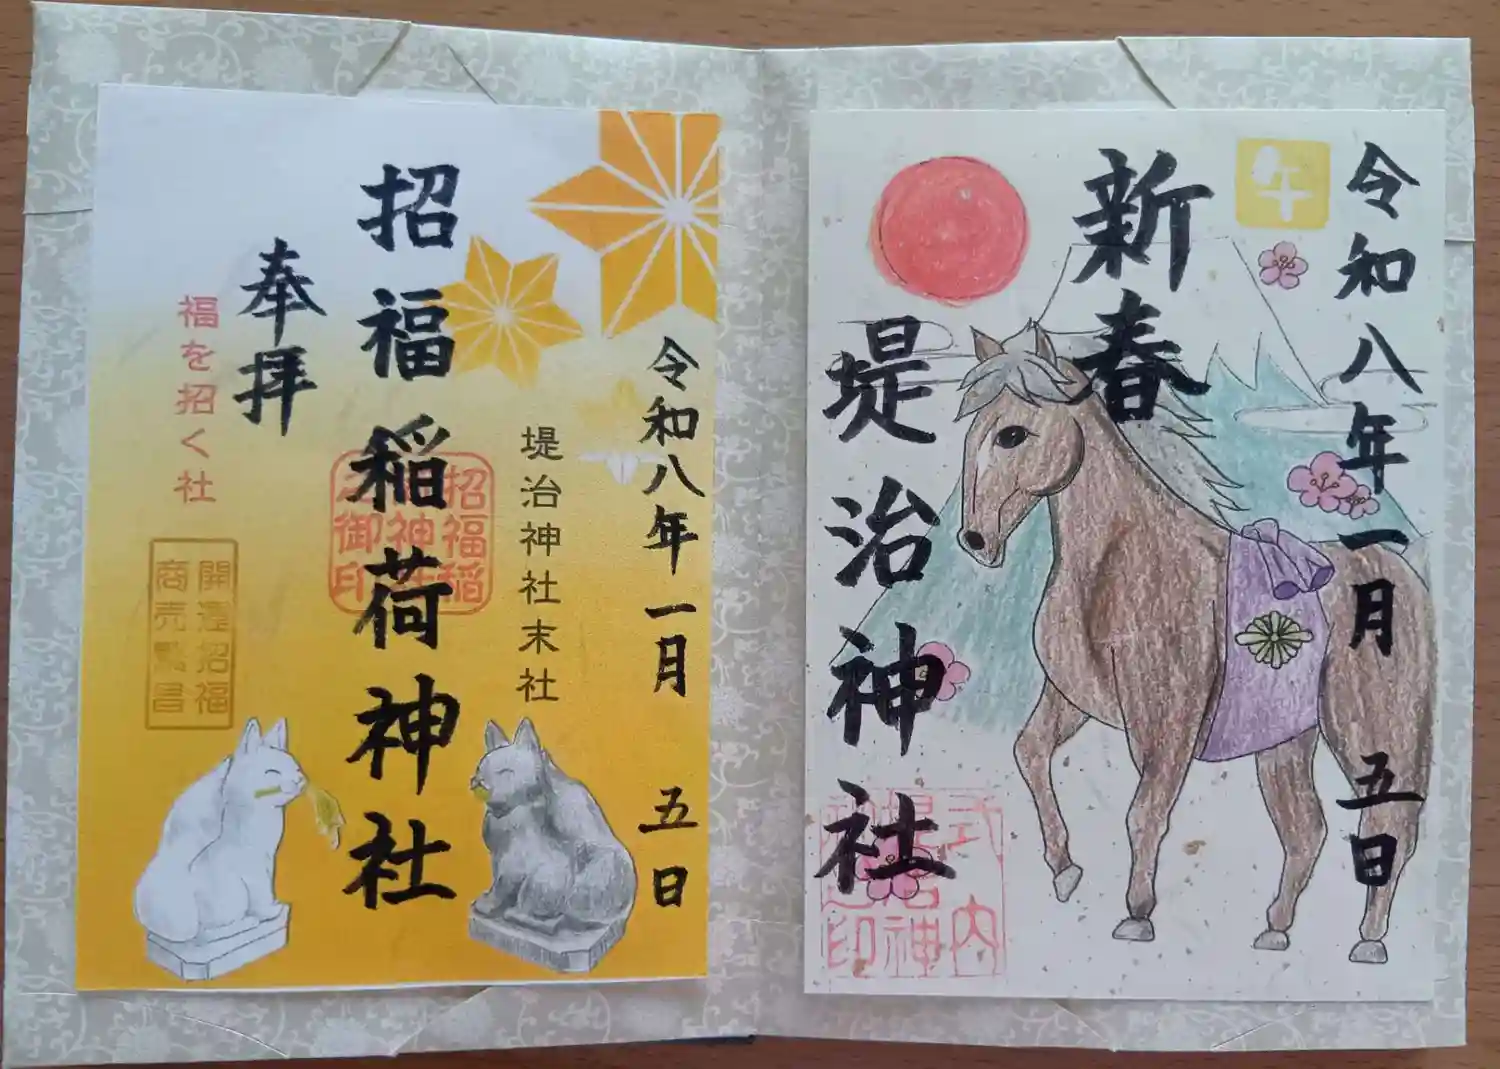 令和八年一月 五日
午
新春
堤治神社
式内
堤治神
印
令和八年一月 五日
堤治神社末社
招福稲荷神社
招福稲
之御印
奉拝
福を招く社
開運招福
商売繁昌